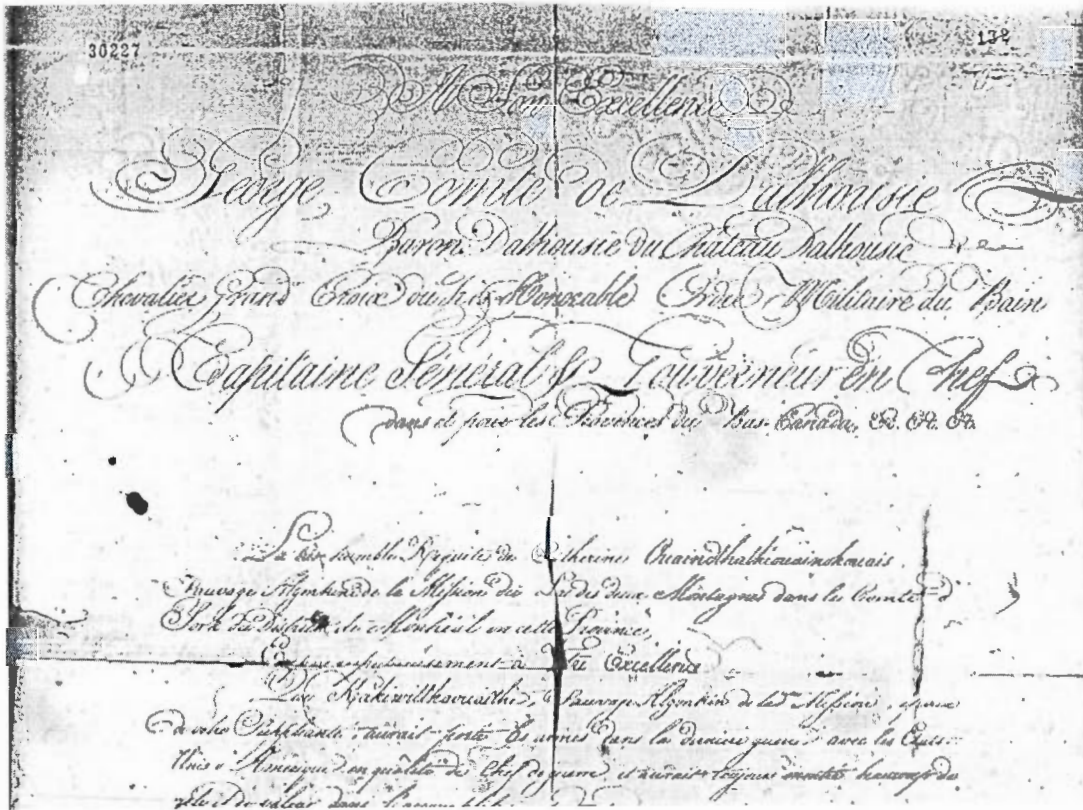 30227
132
A Son Excellence
George Comte de Dalhousie
Baron Dalhousie du Château Dalhousie
Chevalier Grand Croix du très Honorable Ordre Militaire du Bain
Capitaine Général & Gouverneur en Chef
dans et pour les Provinces du Bas Canada, &. &. &.
La très humble Requête de Catherine
Sauvage Algonkine de la Mission du Lac des deux Montagnes dans le Comté d'
York du District de Montréal en cette Province,
Expose respectueusement à Votre Excellence
Que Sauvage Algonkin de lad. Mission,
de votre Suppliante aurait porté les armes dans la dernière guerre avec les Etats
Unis d'Amérique en qualité de Chef de guerre et aurait toujours montré beaucoup de
et de valeur dans